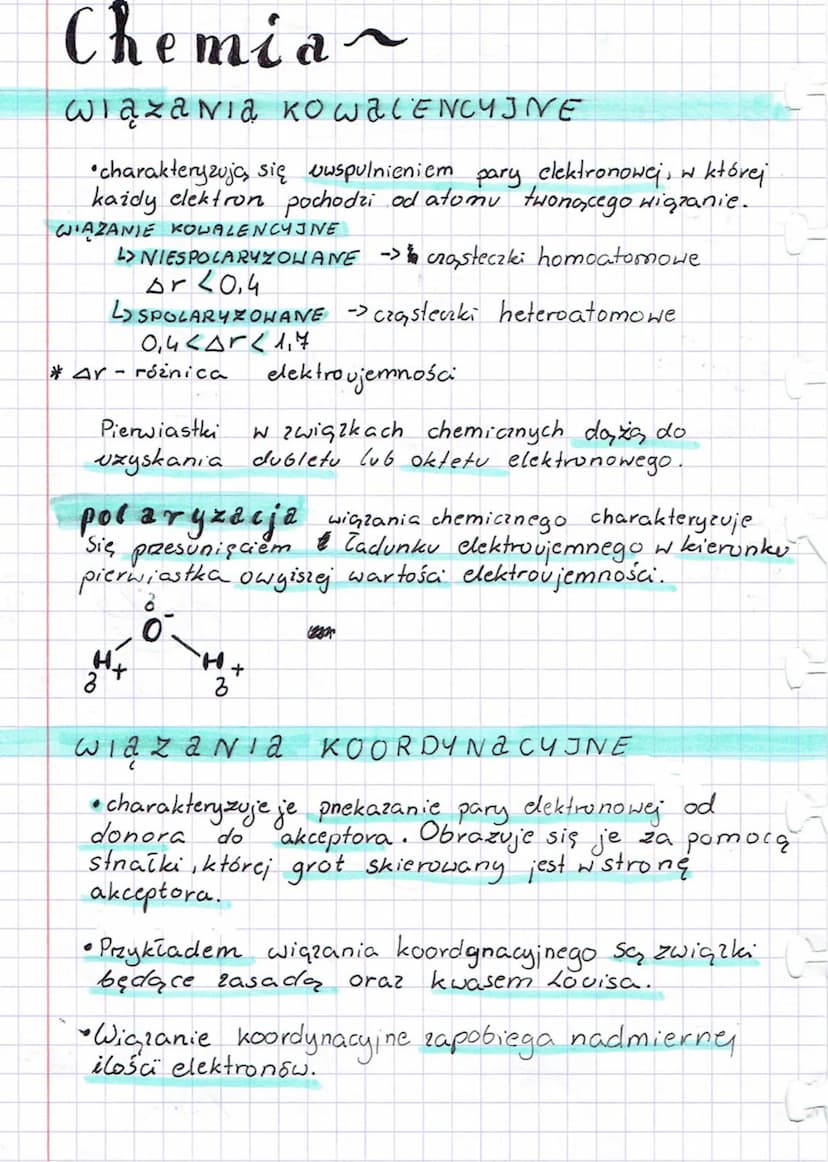 Chemia~
WIĄZANIA KOWALENCYJNE
•charakteryzują się uwspulnieniem pary elektronowej, w której
każdy elektron pochodzi od atomu tworzącego wiązanie.
WIĄZANIE KOWALENCYJNE
↳ NIESPOLARYZOWANE -> cząsteczki homoatomowe
Δr < 0,4
↳ SPOLARYZOWANE -> cząsteczki heteroatomowe
0,4 < Δr < 1,7
* Δr - różnica elektroujemności
Pierwiastki w związkach chemicznych dążą do
uzyskania dubletu lub oktetu elektronowego.
polaryzacja wiązania chemicznego charakteryzuje
się przesunięciem ładunku elektroujemnego w kierunku
pierwiastka owyższej wartości elektroujemności.
δ
O-
H+ H+
δ δ
WIĄZANIA KOORDYNACYJNE
•charakteryzuje je przekazanie pary elektronowej od
donora do akceptora. Obrazuje się je za pomocą
strzałki, której grot skierowany jest w stronę
akceptora.
•Przykładem wiązania koordynacyjnego są związki
będące zasadą oraz kwasem Lovisa.
•Wiązanie koordynacyjne zapobiega nadmiernej
ilości elektronów.